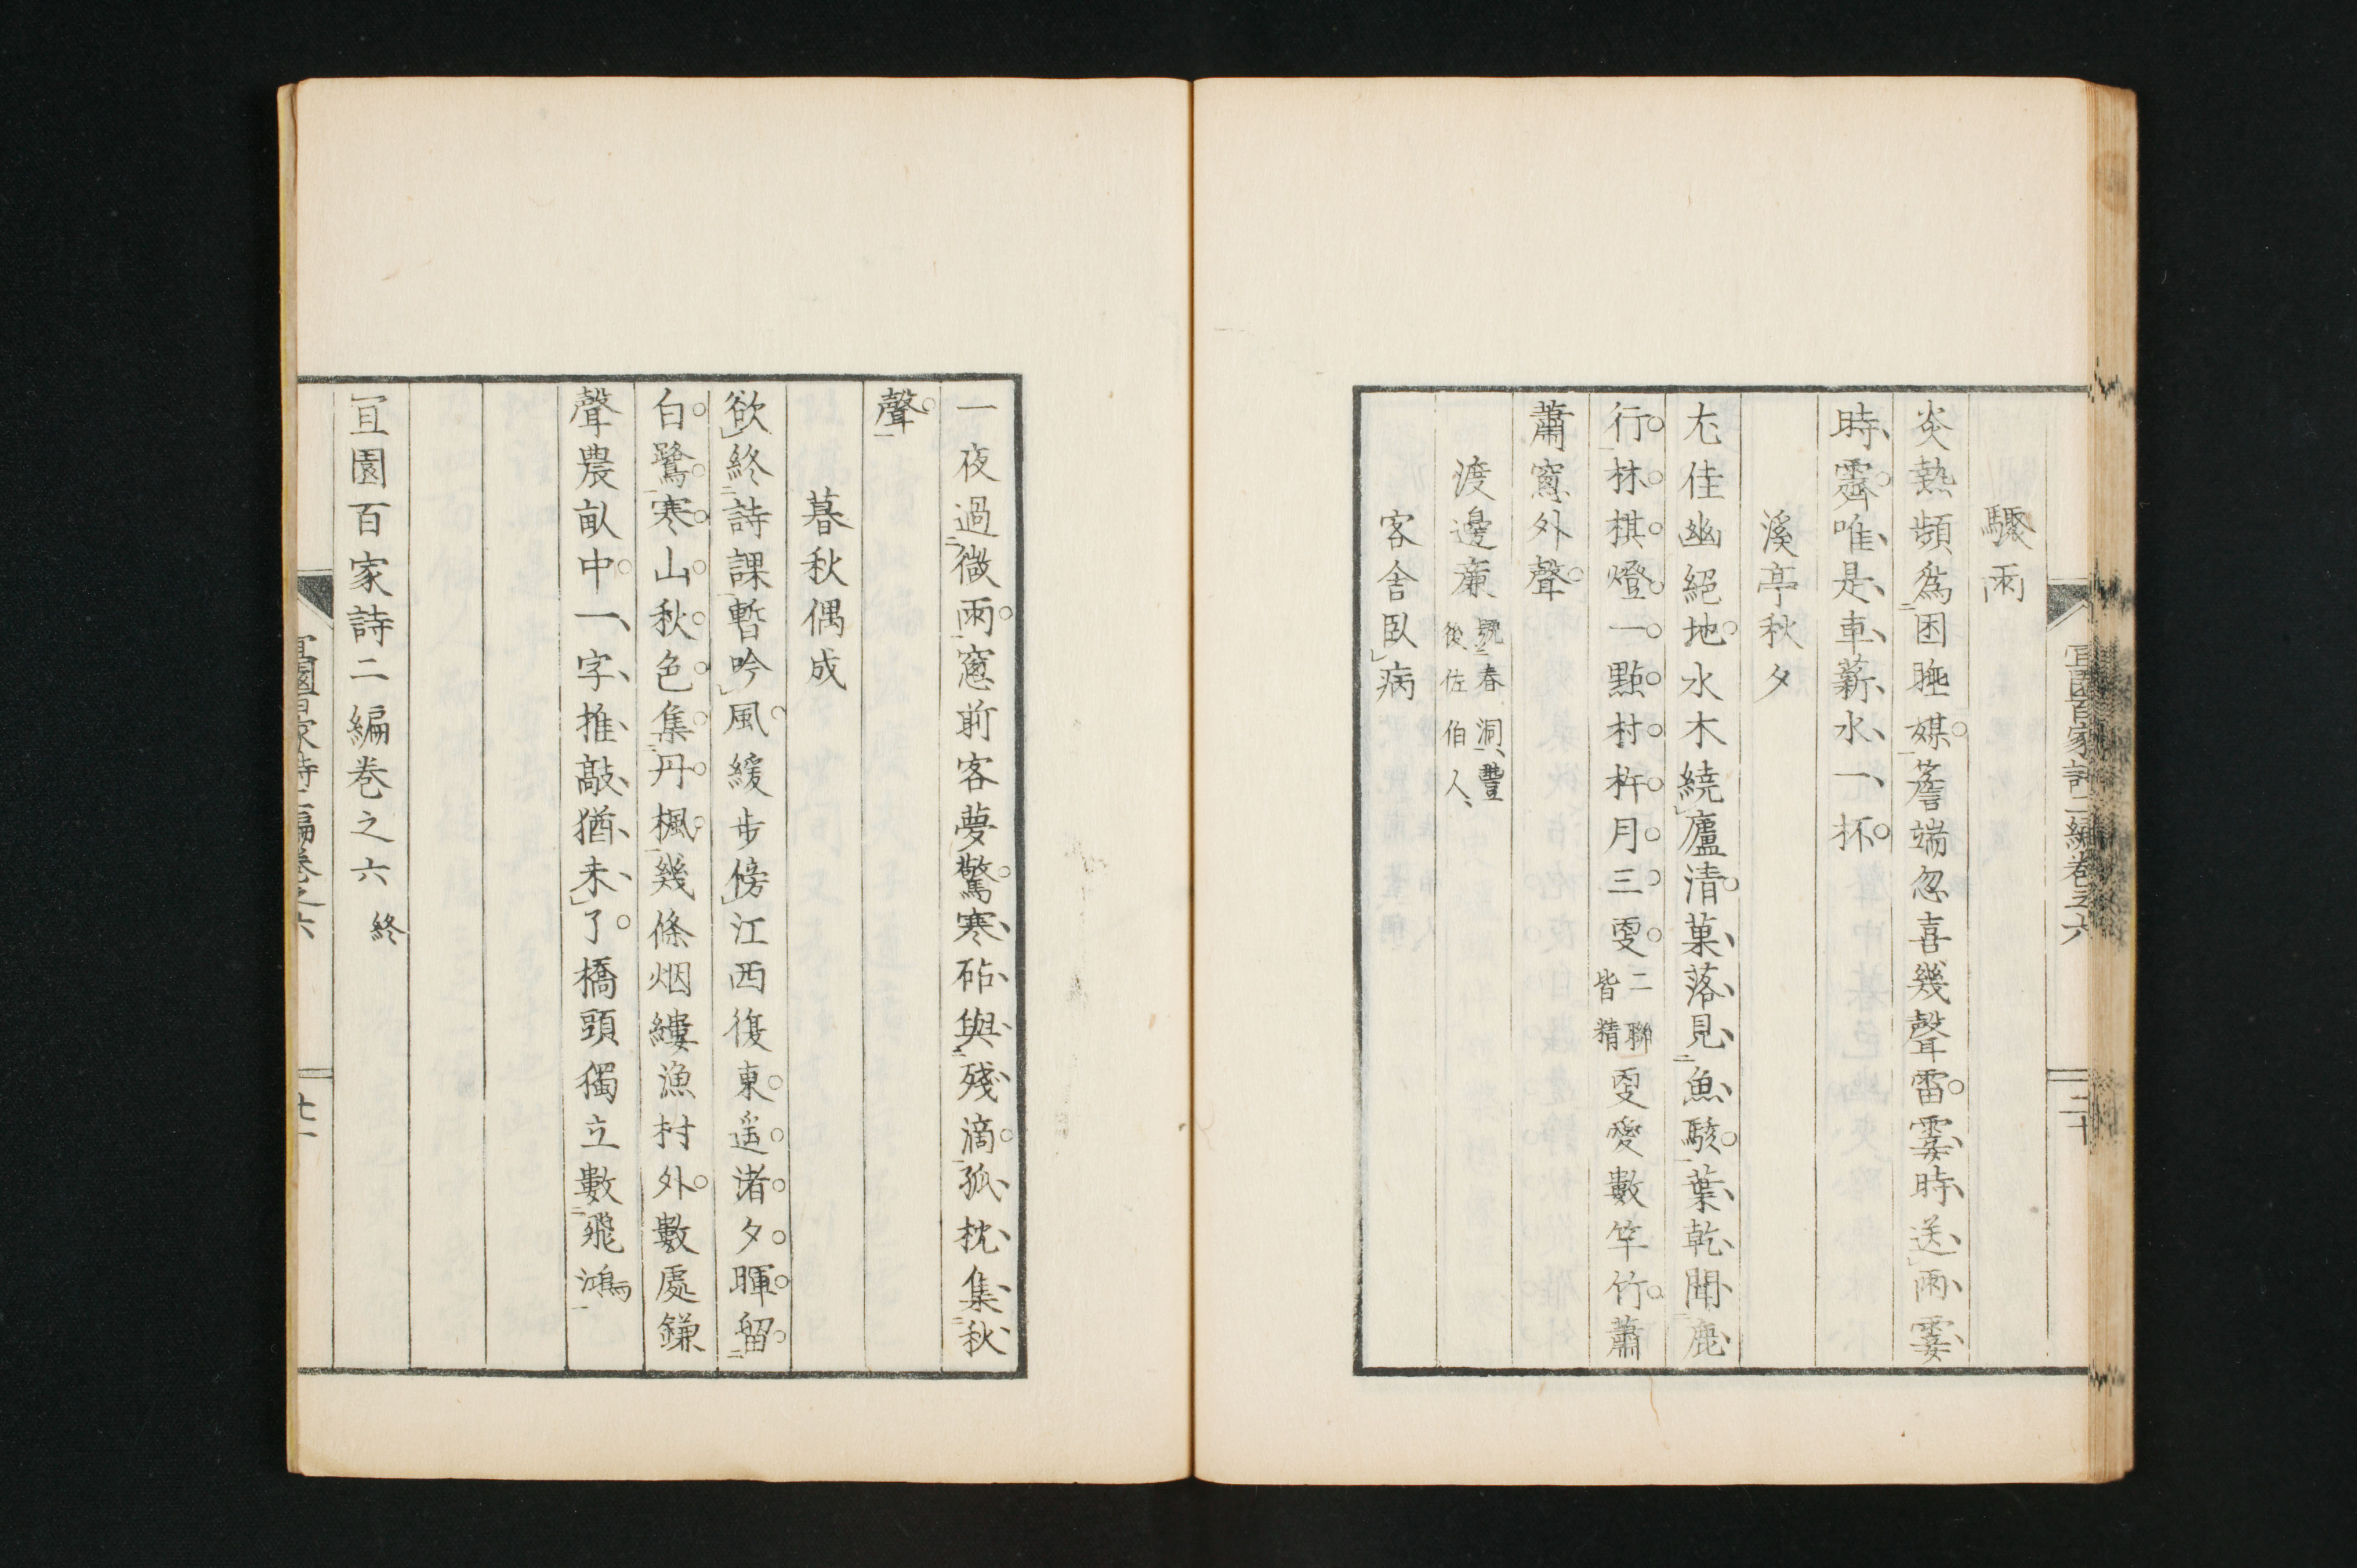 宜園百家詩二編卷之六
二十
驟雨
炎熱頻為困睡媒簷端忽喜幾聲雷霎時送雨霎
時霽唯是車薪水一杯
溪亭秋夕
尤佳幽絕地水木繞廬清菓落見魚駭葉乾聞鹿
行林棋燈一點村杵月三更二聯皆精更愛數竿竹蕭
蕭窻外聲
渡邊廉號春洞、豐後佐伯人、
客舍臥病
一夜過微雨窻前客夢驚寒砧與殘滴孤枕集秋
聲
暮秋偶成
欲終詩課暫吟風緩步傍江西復東遥渚夕暉留
白鷺寒山秋色集丹楓幾條烟縷漁村外數處鎌
聲農畝中一字推敲猶未了橋頭獨立數飛鴻
宜園百家詩二編卷之六 終
宜園百家詩二編卷之六
廿一